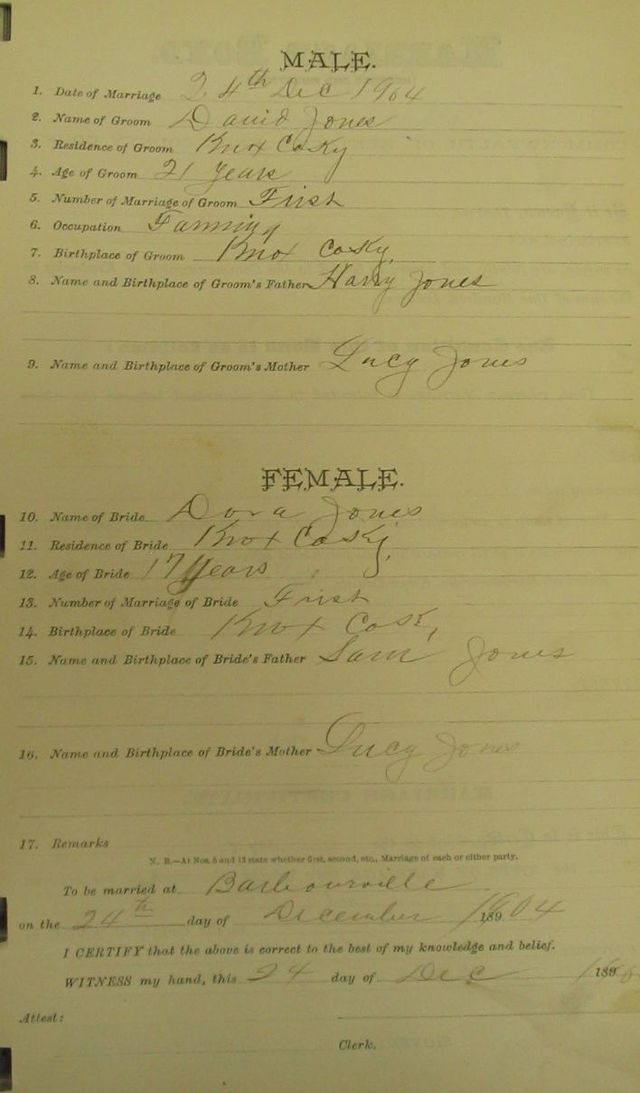 MALE.
1. Date of Marriage 24th Dec 1904
2. Name of Groom David Jones
3. Residence of Groom Knox Co Ky
4. Age of Groom 21 years
5. Number of Marriage of Groom First
6. Occupation Farming
7. Birthplace of Groom Knox Co Ky,
8. Name and Birthplace of Groom's Father Harry Jones
9. Name and Birthplace of Groom's Mother Lucy Jones
FEMALE.
10. Name of Bride Dora Jones
11. Residence of Bride Knox Co Ky
12. Age of Bride 17 Years
13. Number of Marriage of Bride First
14. Birthplace of Bride Knox Co
15. Name and Birthplace of Bride's Father Sam Jones
16. Name and Birthplace of Bride's Mother Lucy Jones
17. Remarks
N. B.—At Nos. 5 and 13 state whether first, second, etc., Marriage of each or either party.
To be married at Barbourville
on the 24th day of December 1904
I CERTIFY that the above is correct to the best of my knowledge and belief.
WITNESS my hand, this 24 day of Dec 189
Attest:
Clerk.